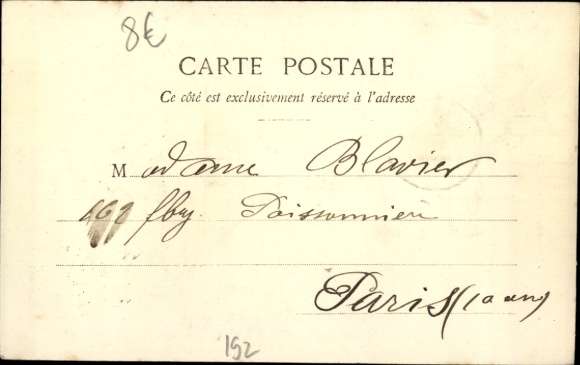 8€
CARTE POSTALE
Ce côté est exclusivement réservé à l'adresse
Madame Blavier
162 fbg. Poissonnière
Paris (10 arr)
192